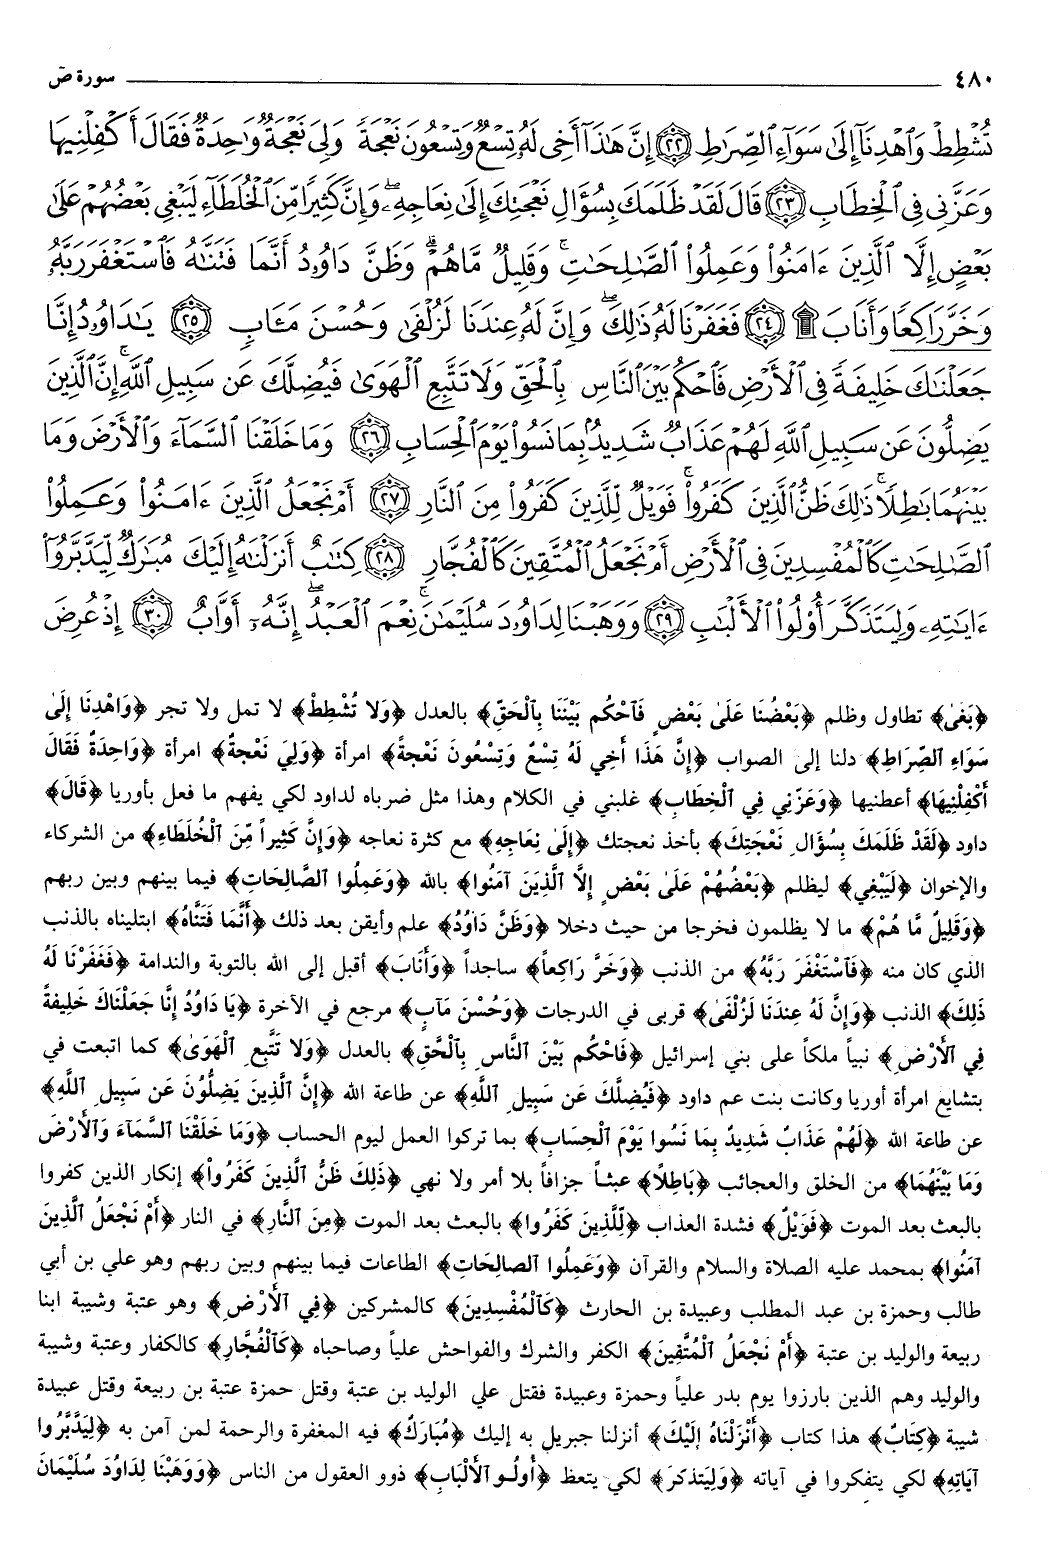 ٤٨٠ سورة صٓ
تُشْطِطْ وَٱهْدِنَآ إِلَىٰ سَوَآءِ ٱلصِّرَٰطِ ﴿٢٢﴾ إِنَّ هَٰذَآ أَخِى لَهُۥ تِسْعٌ وَتِسْعُونَ نَعْجَةً وَلِىَ نَعْجَةٌ وَٰحِدَةٌ فَقَالَ أَكْفِلْنِيهَا
وَعَزَّنِى فِى ٱلْخِطَابِ ﴿٢٣﴾ قَالَ لَقَدْ ظَلَمَكَ بِسُؤَالِ نَعْجَتِكَ إِلَىٰ نِعَاجِهِۦ ۖ وَإِنَّ كَثِيرًا مِّنَ ٱلْخُلَطَآءِ لَيَبْغِى بَعْضُهُمْ عَلَىٰ
بَعْضٍ إِلَّا ٱلَّذِينَ ءَامَنُوا۟ وَعَمِلُوا۟ ٱلصَّٰلِحَٰتِ وَقَلِيلٌ مَّا هُمْ ۗ وَظَنَّ دَاوُۥدُ أَنَّمَا فَتَنَّٰهُ فَٱسْتَغْفَرَ رَبَّهُۥ
وَخَرَّ رَاكِعًا وَأَنَابَ ۩ ﴿٢٤﴾ فَغَفَرْنَا لَهُۥ ذَٰلِكَ ۖ وَإِنَّ لَهُۥ عِندَنَا لَزُلْفَىٰ وَحُسْنَ مَـَٔابٍ ﴿٢٥﴾ يَٰدَاوُۥدُ إِنَّا
جَعَلْنَٰكَ خَلِيفَةً فِى ٱلْأَرْضِ فَٱحْكُم بَيْنَ ٱلنَّاسِ بِٱلْحَقِّ وَلَا تَتَّبِعِ ٱلْهَوَىٰ فَيُضِلَّكَ عَن سَبِيلِ ٱللَّهِ ۚ إِنَّ ٱلَّذِينَ
يَضِلُّونَ عَن سَبِيلِ ٱللَّهِ لَهُمْ عَذَابٌ شَدِيدٌۢ بِمَا نَسُوا۟ يَوْمَ ٱلْحِسَابِ ﴿٢٦﴾ وَمَا خَلَقْنَا ٱلسَّمَآءَ وَٱلْأَرْضَ وَمَا
بَيْنَهُمَا بَٰطِلًا ۚ ذَٰلِكَ ظَنُّ ٱلَّذِينَ كَفَرُوا۟ ۚ فَوَيْلٌ لِّلَّذِينَ كَفَرُوا۟ مِنَ ٱلنَّارِ ﴿٢٧﴾ أَمْ نَجْعَلُ ٱلَّذِينَ ءَامَنُوا۟ وَعَمِلُوا۟
ٱلصَّٰلِحَٰتِ كَٱلْمُفْسِدِينَ فِى ٱلْأَرْضِ أَمْ نَجْعَلُ ٱلْمُتَّقِينَ كَٱلْفُجَّارِ ﴿٢٨﴾ كِتَٰبٌ أَنزَلْنَٰهُ إِلَيْكَ مُبَٰرَكٌ لِّيَدَّبَّرُوٓا۟
ءَايَٰتِهِۦ وَلِيَتَذَكَّرَ أُو۟لُوا۟ ٱلْأَلْبَٰبِ ﴿٢٩﴾ وَوَهَبْنَا لِدَاوُۥدَ سُلَيْمَٰنَ ۚ نِعْمَ ٱلْعَبْدُ ۖ إِنَّهُۥٓ أَوَّابٌ ﴿٣٠﴾ إِذْ عُرِضَ
﴿بَغَى﴾ تطاول وظلم ﴿بَعْضُنَا عَلَىٰ بَعْضٍ فَٱحْكُم بَيْنَنَا بِٱلْحَقِّ﴾ بالعدل ﴿وَلَا تُشْطِطْ﴾ لا تمل ولا تجر ﴿وَٱهْدِنَا إِلَىٰ
سَوَاءِ ٱلصِّرَاطِ﴾ دلنا إلى الصواب ﴿إِنَّ هَذَا أَخِي لَهُ تِسْعٌ وَتِسْعُونَ نَعْجَةً﴾ امرأة ﴿وَلِيَ نَعْجةٌ﴾ امرأة ﴿وَاحِدَةٌ فَقَالَ
أَكْفِلْنِيهَا﴾ أعطنيها ﴿وَعَزَّنِي فِي ٱلْخِطَابِ﴾ غلبني في الكلام وهذا مثل ضرباه لداود لكي يفهم ما فعل بأوريا ﴿قَالَ﴾
داود ﴿لَقَدْ ظَلَمَكَ بِسُؤَالِ نَعْجَتِكَ﴾ بأخذ نعجتك ﴿إِلَى نِعَاجِهِ﴾ مع كثرة نعاجه ﴿وَإِنَّ كَثِيراً مِّنَ ٱلْخُلَطَاءِ﴾ من الشركاء
والإخوان ﴿لَيَبْغِي﴾ ليظلم ﴿بَعْضُهُمْ عَلَى بَعْضٍ إِلَّا ٱلَّذِينَ آمَنُوا﴾ بالله ﴿وَعَمِلُوا ٱلصَّالِحَاتِ﴾ فيما بينهم وبين ربهم
﴿وَقَلِيلٌ مَّا هُمْ﴾ ما لا يظلمون فخرجا من حيث دخلا ﴿وَظَنَّ دَاوُدُ﴾ علم وأيقن بعد ذلك ﴿أَنَّمَا فَتَنَّاهُ﴾ ابتليناه بالذنب
الذي كان منه ﴿فَٱسْتَغْفَرَ رَبَّهُ﴾ من الذنب ﴿وَخَرَّ رَاكِعاً﴾ ساجداً ﴿وَأَنَابَ﴾ أقبل إلى الله بالتوبة والندامة ﴿فَغَفَرْنَا لَهُ
ذَلِكَ﴾ الذنب ﴿وَإِنَّ لَهُ عِندَنَا لَزُلْفَى﴾ قربى في الدرجات ﴿وَحُسْنَ مَآبٍ﴾ مرجع في الآخرة ﴿يَا دَاوُدُ إِنَّا جَعَلْنَاكَ خَلِيفَةً
فِي ٱلأَرْضِ﴾ نبياً ملكاً على بني إسرائيل ﴿فَاحْكُم بَيْنَ ٱلنَّاسِ بِٱلْحَقِّ﴾ بالعدل ﴿وَلَا تَتَّبِعِ ٱلْهَوَىٰ﴾ كما اتبعت في
بتشايع امرأة أوريا وكانت بنت عم داود ﴿فَيُضِلَّكَ عَن سَبِيلِ ٱللَّهِ﴾ عن طاعة الله ﴿إِنَّ ٱلَّذِينَ يَضِلُّونَ عَن سَبِيلِ ٱللَّهِ﴾
عن طاعة الله ﴿لَهُمْ عَذَابٌ شَدِيدٌ بِمَا نَسُوا يَوْمَ ٱلْحِسَابِ﴾ بما تركوا العمل ليوم الحساب ﴿وَمَا خَلَقْنَا ٱلسَّمَاءَ وَٱلأَرْضَ
وَمَا بَيْنَهُمَا﴾ من الخلق والعجائب ﴿بَاطِلاً﴾ عبثاً جزافاً بلا أمر ولا نهي ﴿ذَلِكَ ظَنُّ ٱلَّذِينَ كَفَرُوا﴾ إنكار الذين كفروا
بالبعث بعد الموت ﴿فَوَيْلٌ﴾ فشدة العذاب ﴿لِّلَّذِينَ كَفَرُوا﴾ بالبعث بعد الموت ﴿مِنَ ٱلنَّارِ﴾ في النار ﴿أَمْ نَجْعَلُ ٱلَّذِينَ
آمَنُوا﴾ بمحمد عليه الصلاة والسلام والقرآن ﴿وَعَمِلُوا ٱلصالِحَاتِ﴾ الطاعات فيما بينهم وبين ربهم وهو علي بن أبي
طالب وحمزة بن عبد المطلب وعبيدة بن الحارث ﴿كَٱلْمُفْسِدِينَ﴾ كالمشركين ﴿فِي ٱلأَرْضِ﴾ وهو عتبة وشيبة ابنا
ربيعة والوليد بن عتبة ﴿أَمْ نَجْعَلُ ٱلْمُتَّقِينَ﴾ الكفر والشرك والفواحش علياً وصاحباه ﴿كَٱلْفُجَّارِ﴾ كالكفار وعتبة وشيبة
والوليد وهم الذين بارزوا يوم بدر علياً وحمزة وعبيدة فقتل علي الوليد بن عتبة وقتل حمزة عتبة بن ربيعة وقتل عبيدة
شيبة ﴿كِتَابٌ﴾ هذا كتاب ﴿أَنْزَلْنَاهُ إِلَيْكَ﴾ أنزلنا جبريل به إليك ﴿مُبَارَكٌ﴾ فيه المغفرة والرحمة لمن آمن به ﴿لِيَدَّبَّرُوا
آيَاتِهِ﴾ لكي يتفكروا في آياته ﴿وَلِيَتذكرَ﴾ لكي يتعظ ﴿أُولُو ٱلأَلْبَابِ﴾ ذوو العقول من الناس ﴿وَوَهَبْنَا لِدَاوُدَ سُلَيْمَانَ